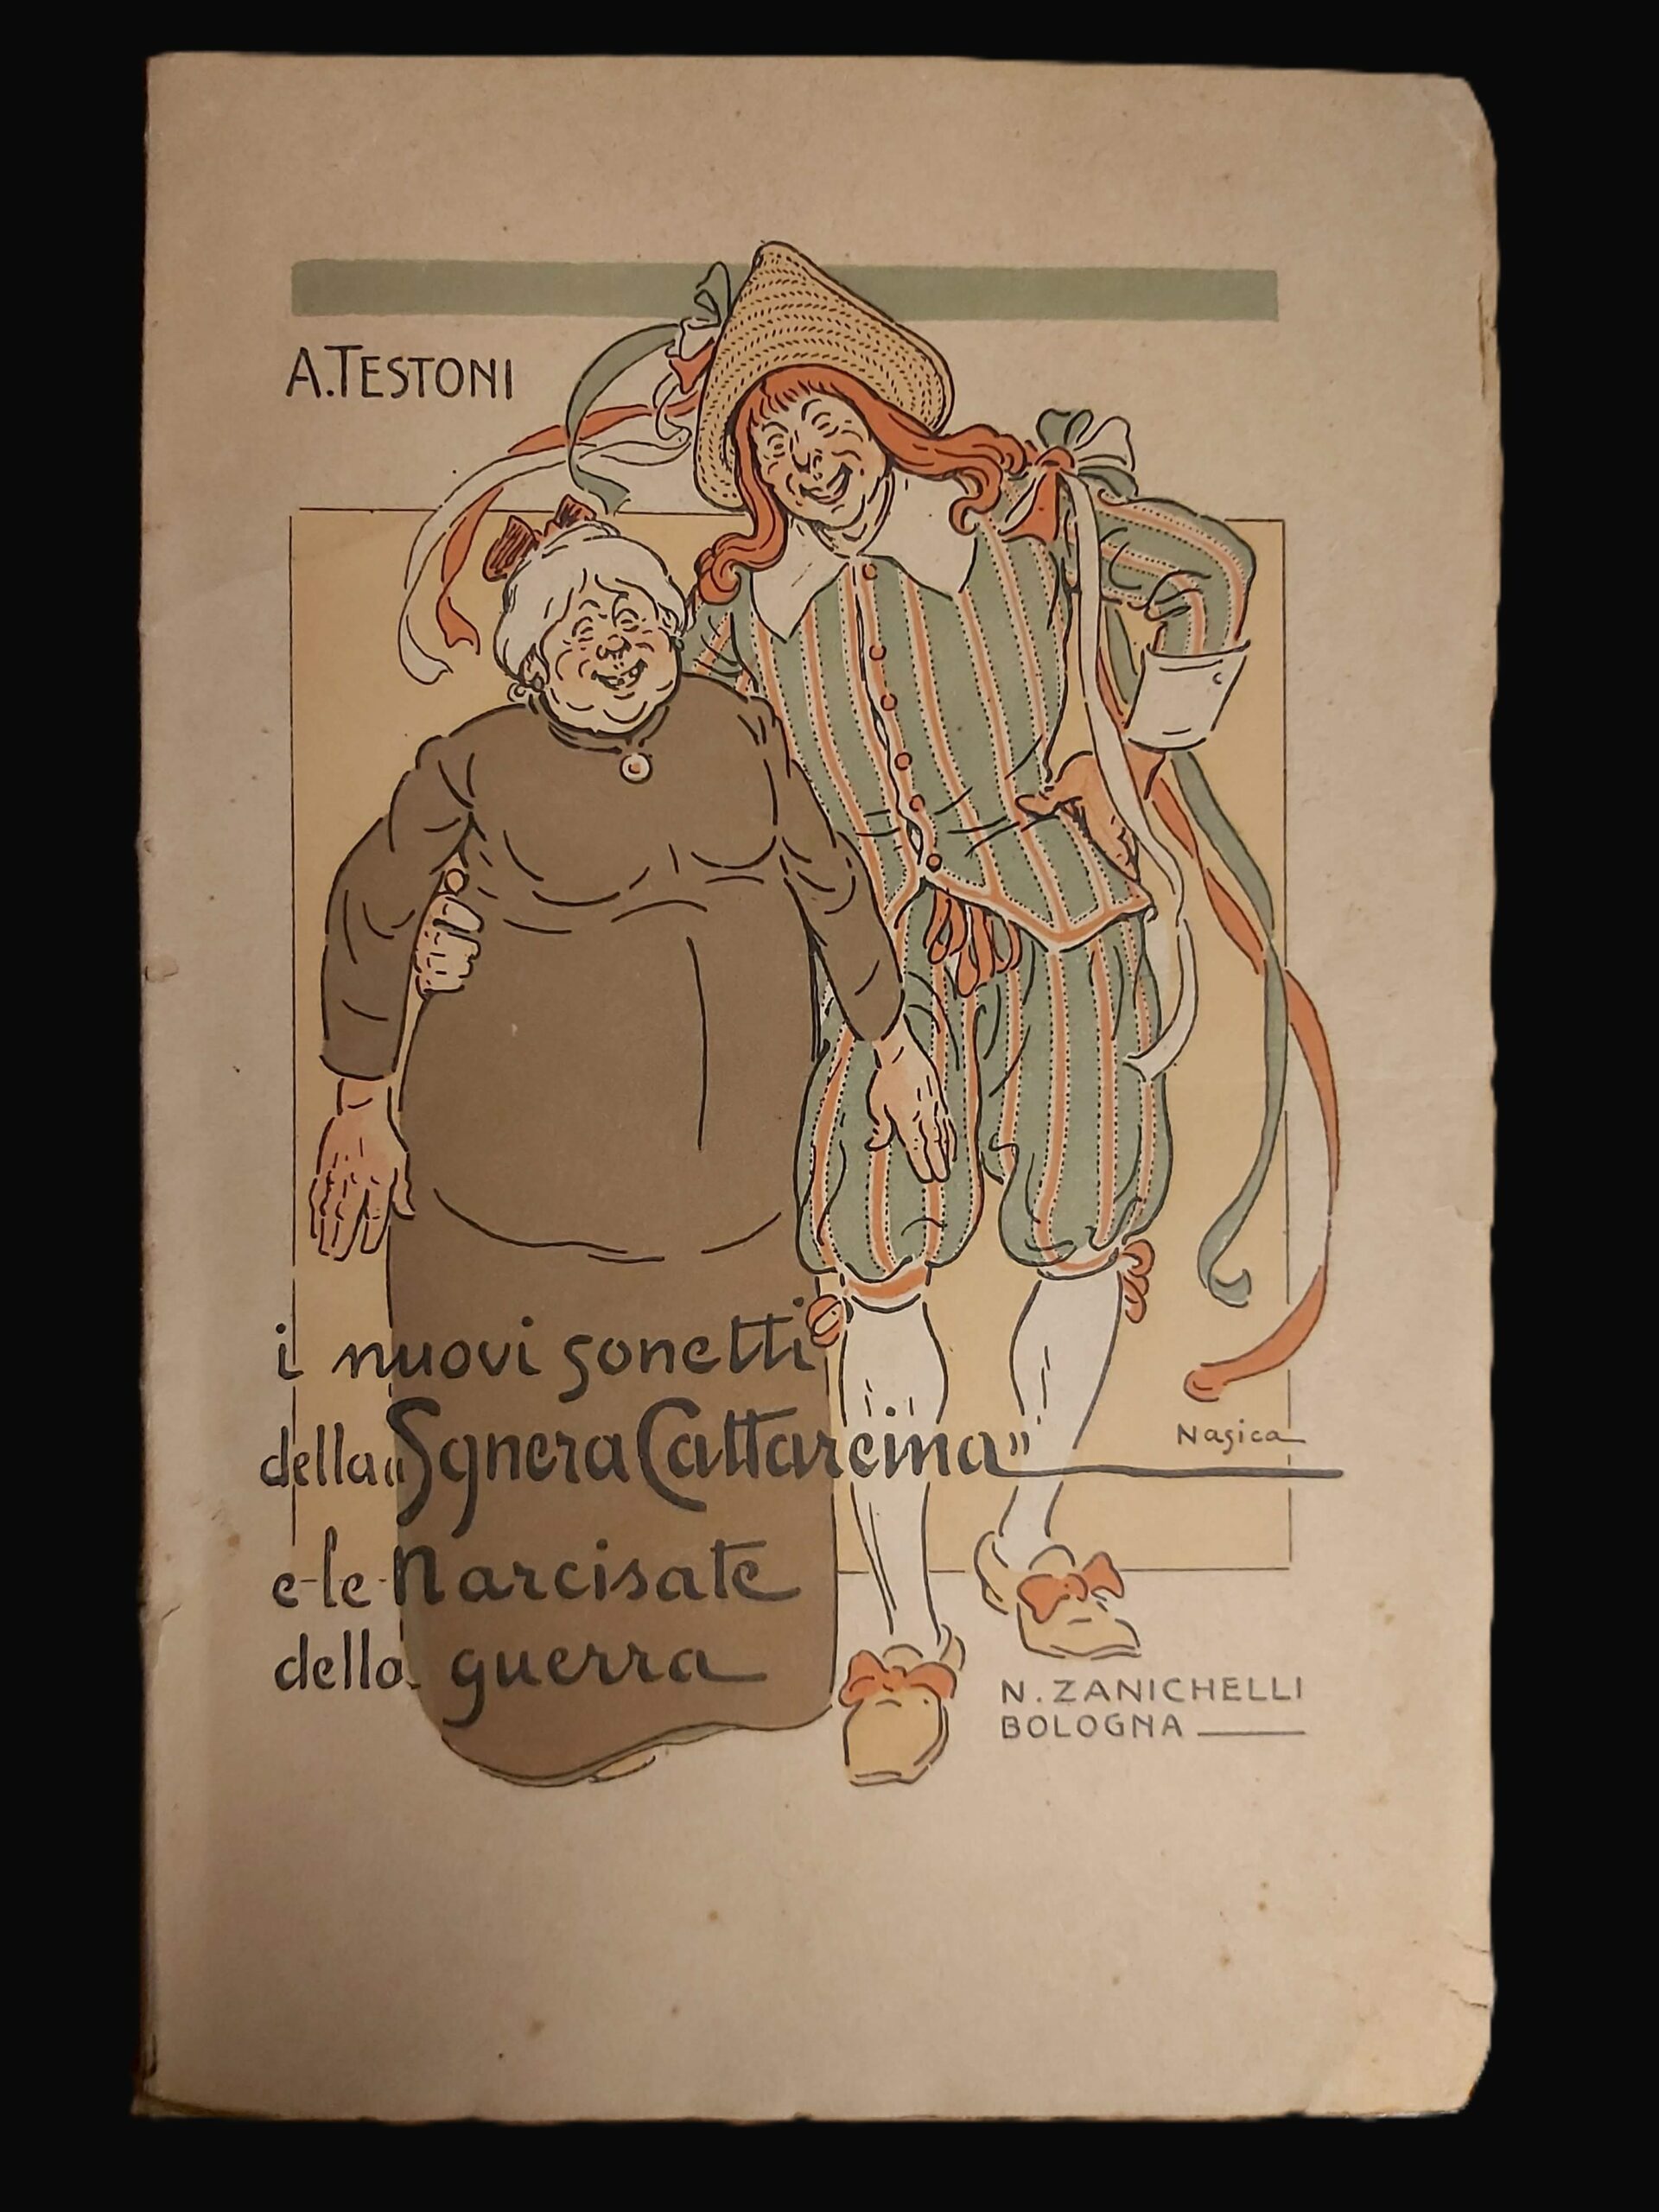 A. TESTONI
i nuovi sonetti
della „Sgnera Cattareina”
e le Narcisate
della guerra
Nasica
N. ZANICHELLI
BOLOGNA